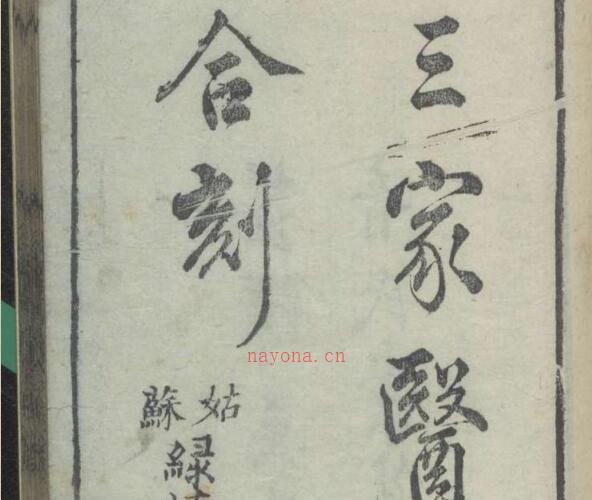 三家醫
合刻
姑
蘇
綠
nayona.cn